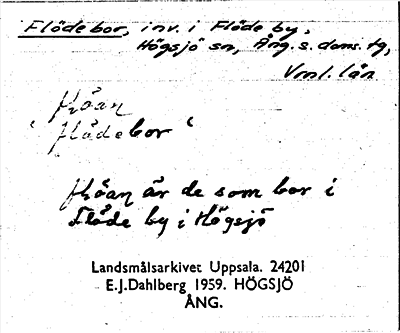 Flödebor, inv. i Flöde by,
Högsjö sn, Ång. s. doms. tg,
Vnl. län
flöan
‘ flödebor ‘
flöan är de som bor i
Flöde by i Högsjö
Landsmålsarkivet Uppsala. 24201
E.J.Dahlberg 1959. HÖGSJÖ
ÅNG.